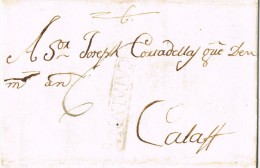 A Sor Joseph Corradellas que Deu
m an
Calaff